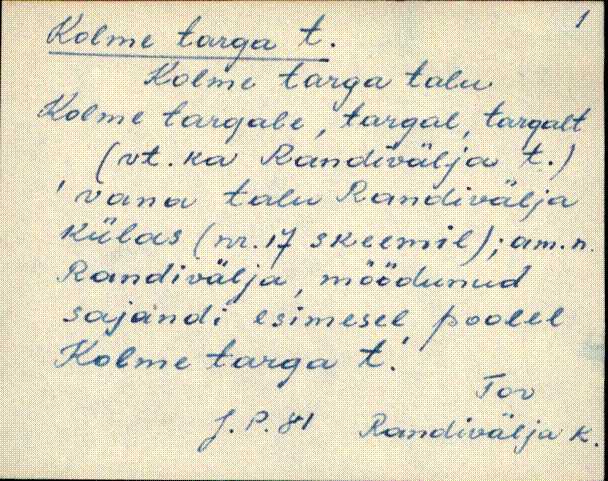 1
Kolme targa t.
Kolme targa talu
Kolme targale, targal, targalt
(vt. ka Randivälja t.)
' vana talu Randivälja
külas (nr. 17 skeemil); am. n.
Randivälja, möödunud
sajandi esimesel poolel
Kolme targa t.'
Tov
J. P. 81 Randivälja k.